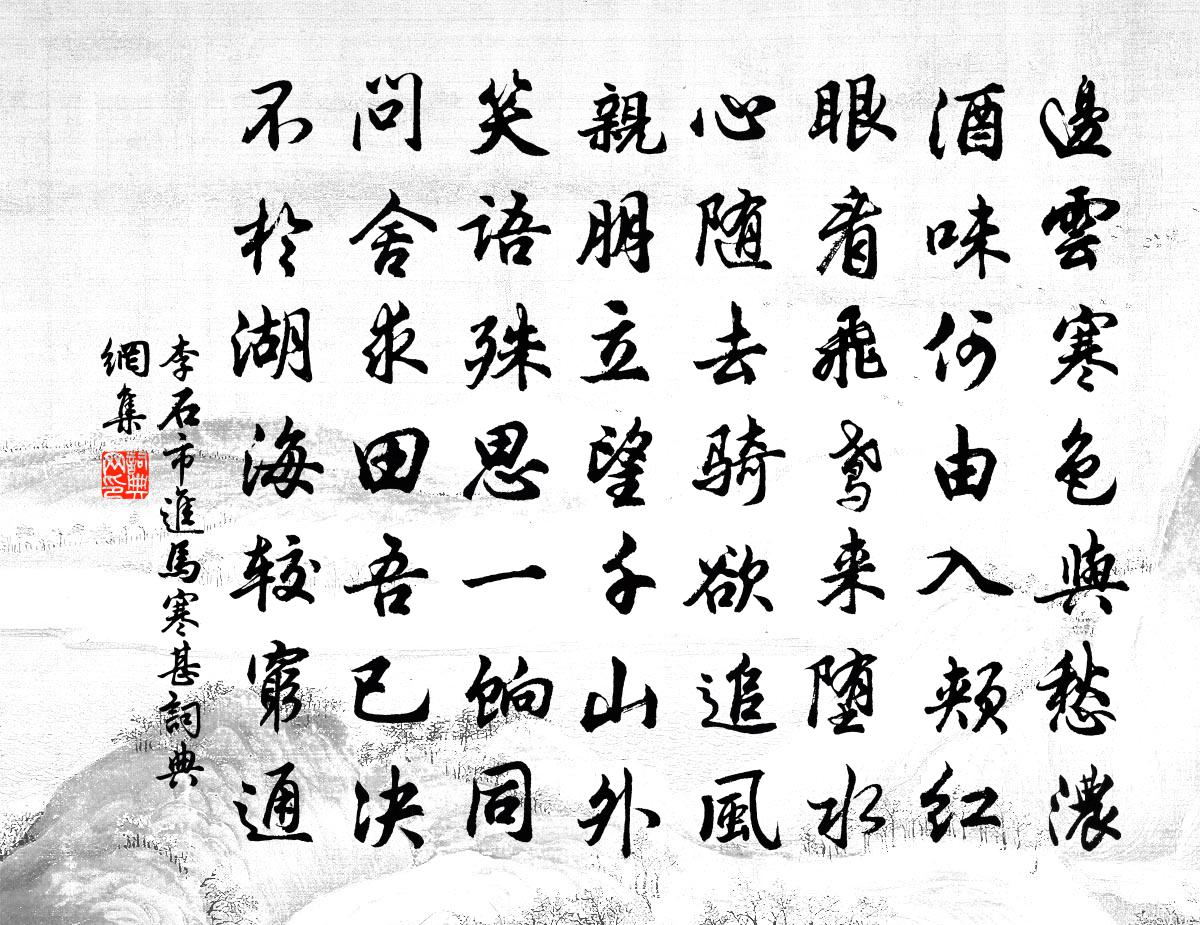 邊雲寒色與愁濃
酒味何由入頰紅
眼看飛鳶来堕水
心随去騎欲追風
親朋立望千山外
笑語殊思一餉同
問舍求田吾已决
不於湖海較窮通
李石市進馬寒甚詞典
網集
詞典網印